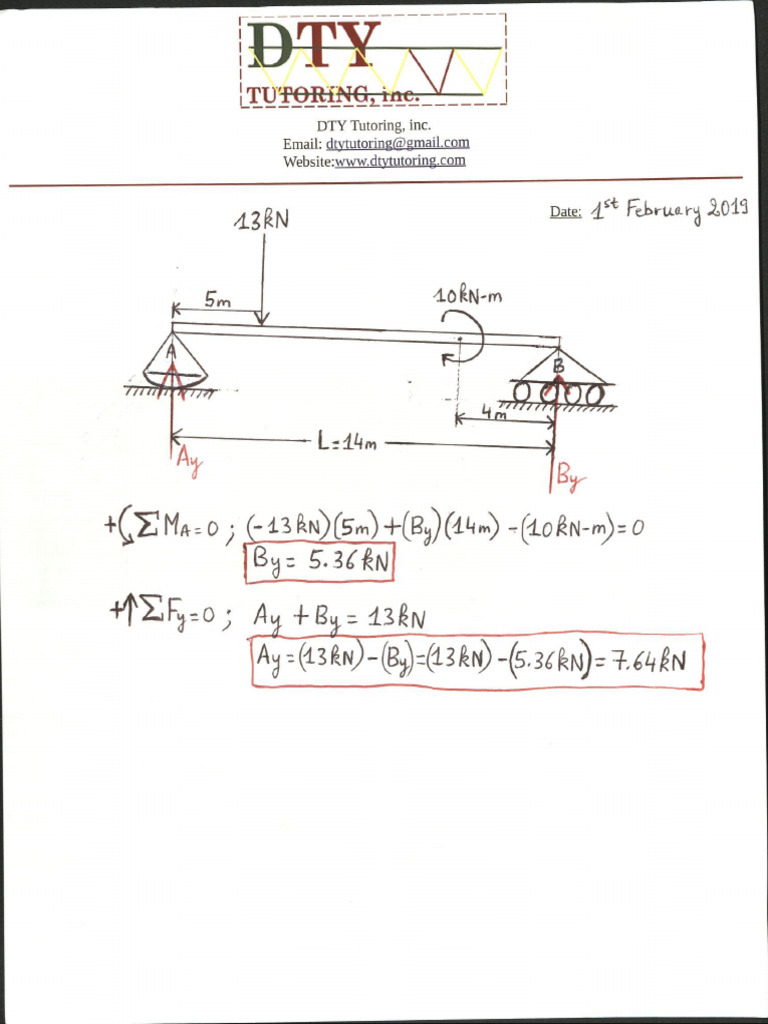 DTY
TUTORING, inc.
DTY Tutoring, inc.
Email: dtytutoring@gmail.com
Website:www.dtytutoring.com
Date: 1st February 2019
13kN
5m
10kN-m
A
B
4m
L=14m
Ay
By
+ ΣMA=0 ; (-13kN)(5m)+(By)(14m) -(10kN-m)=0
By= 5.36kN
+↑ΣFy=0 ; Ay + By= 13kN
Ay=(13kN)-(By)=(13kN)-(5.36kN)= 7.64kN